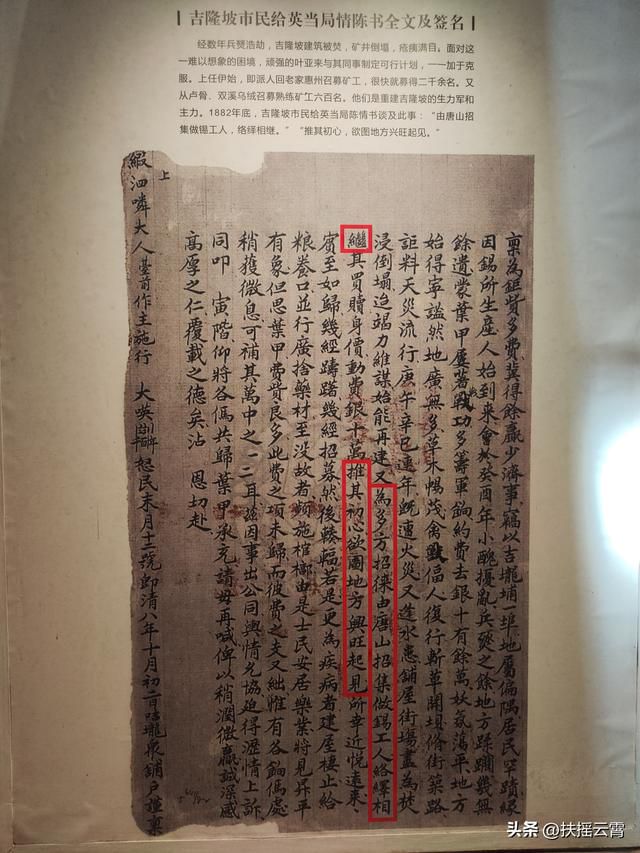 吉隆坡市民给英当局情陈书全文及签名
经数年兵燹浩劫，吉隆坡建筑被焚，矿井倒塌，疮痍满目。面对这
一难以想象的困境，顽强的叶亚来与其同事制定可行计划，一一加于克
服。上任伊始，即派人回老家惠州召募矿工，很快就募得二千余名。又
从卢骨、双溪乌绒召募熟练矿工六百名。他们是重建吉隆坡的生力军和
主力。1882年底，吉隆坡市民给英当局陈情书谈及此事：“由唐山招
集做锡工人，络绎相继。”“推其初心，欲图地方兴旺起见。”
稟為鉅貲多費冀得餘贏少濟事竊以吉壠埔一埠地屬偏隅居民罕蹟緣
因錫所生產人始到來會於癸酉年小醜擾亂兵燹之餘地方蹂躪幾無
餘遺蒙葉甲屢著戰功多籌軍餉約費去銀十有餘萬妖氛蕩平地方
始得寧謐然地廣無多草木暢茂禽獸偪人復行斬草開垻脩街築路
詎料天災流行庚午辛巳連年既遭火災又逢水患鋪屋街塲盡為焚
浸倒塌迨竭力維謀始能再建又為多方招徠由唐山招集做錫工人絡繹相
繼其買贖身價動費銀十萬推其初心欲圖地方興旺起見所幸近悅遠來、
賓至如歸幾經躊躇幾經招募然後輳輻若是更為疾病者建屋棲止給
粮養口並行廣捨藥材至没故者頻施棺槨由是士民安居樂業將見昇平
有象但思葉甲費貲良多此費之項未歸而彼費之支又絀惟有各餉傌處
稍獲微息可補其萬中之一二耳茲因事出公同輿情允協迫得瀝情上訴
同叩 寅階仰將各傌共歸葉甲承充請毋再喊俾以稍潤微贏誠深感
高厚之仁覆載之德矣沾 恩切赴
上
泗 大人臺前作主施行 大英 年 末月十二號即清八年十月初二日 壠 鋪户謹稟
头条 @扶摇云霄